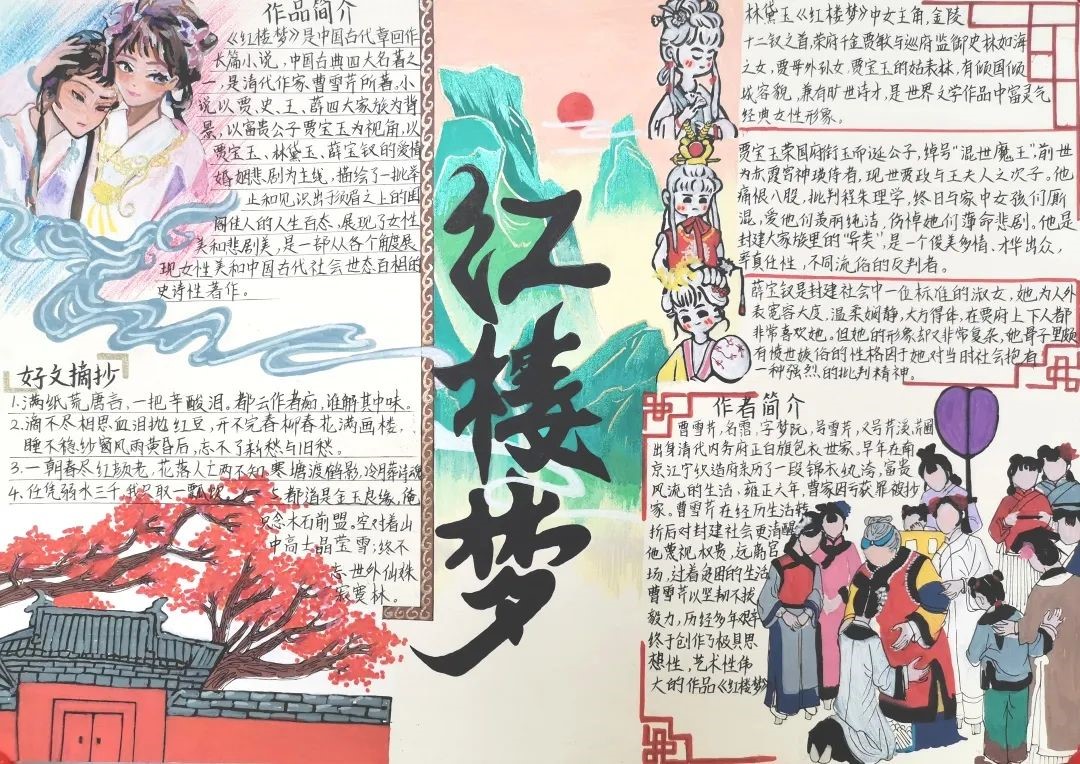 作品简介
《红楼梦》是中国古代章回体
长篇小说,中国古典四大名著之
一,是清代作家曹雪芹所著,小
说以贾、史、王、薛四大家族为背
景,以富贵公子贾宝玉为视角,以
贾宝玉、林黛玉、薛宝钗的爱情
婚姻悲剧为主线,描绘了一批举
止和见识出于须眉之上的闺
阁佳人的人生百态,展现了女性
美和悲剧美,是一部从各个角度展
现女性美和中国古代社会世态百相的
史诗性著作。
好文摘抄
1.满纸荒唐言,一把辛酸泪。都云作者痴,谁解其中味。
2.滴不尽相思血泪抛红豆,开不完春柳春花满画楼,
睡不稳纱窗风雨黄昏后,忘不了新愁与旧愁
3.一朝春尽红颜老,花落人亡两不知,寒塘渡鹤影,冷月葬诗魂
4.任凭弱水三千,我只取一瓢饮
5.都道是金玉良缘,俺
只念木石前盟。空对着山
中高士晶莹雪;终不
忘世外仙姝
寂寞林。
红楼梦
林黛玉《红楼梦》中女主角,金陵
十二钗之首,荣府千金贾敏与巡府监御史林如海
之女,贾母外孙女,贾宝玉的姑表妹,有倾国倾
城容貌,兼有旷世诗才,是世界文学作品中富灵气
经典女性形象。
贾宝玉荣国府衔玉而诞公子,绰号“混世魔王”,前世
为赤霞宫神瑛侍者,现世贾政与王夫人之次子。他
痛恨八股,批判程朱理学,终日与家中女孩们厮
混,爱他们美丽纯洁,伤悼她们薄命悲剧。他是
封建大家族里的“异类”,是一个俊美多情、才华出众,
率真任性,不同流俗的反判者。
薛宝钗是封建社会中一位标准的淑女,她为人外
表宽容大度,温柔娴静,大方得体,在贾府上下人都
非常喜欢她。但她的形象却又非常复杂,他骨子里颇
有愤世嫉俗的性格因于她对当时社会抱有
一种强烈的批判精神。
作者简介
曹雪芹,名霑,字梦阮,号雪芹,又号芹溪、芹圃
出身清代内务府正白旗包衣世家,早年在南
京江宁织造府亲历了一段锦衣纨绔、富贵
风流的生活,雍正六年,曹家因亏获罪被抄
家。曹雪芹在经历生活转
折后对封建社会更清醒
他蔑视权贵,远离官
场,过着贫困的生活
曹雪芹以坚韧不拔
毅力,历经多年艰辛
终于创作了极具思
想性,艺术性伟
大的作品《红楼梦》